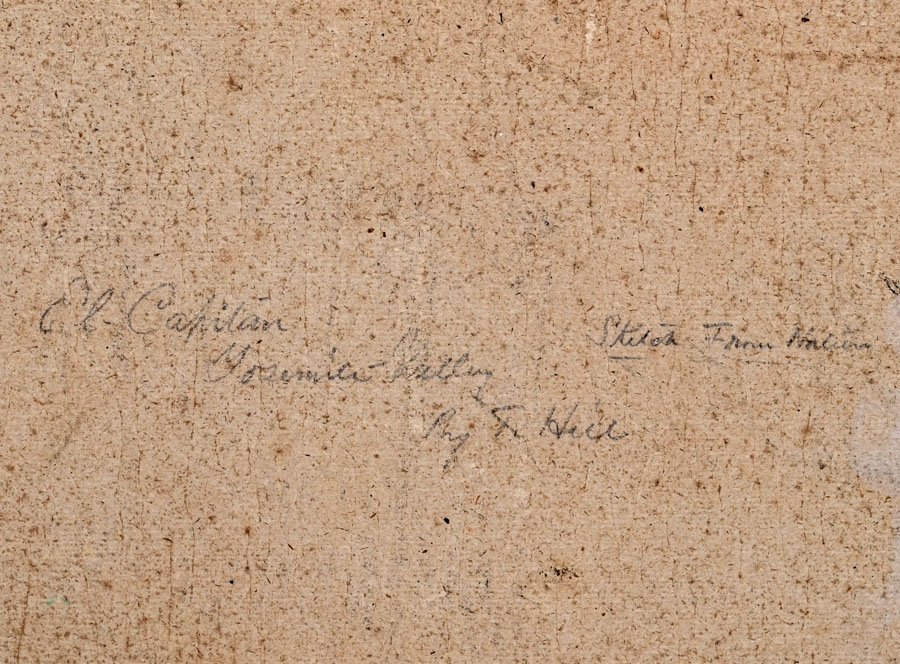 El Capitan
Yosemite Valley
By T. Hill
Sketch From Nature